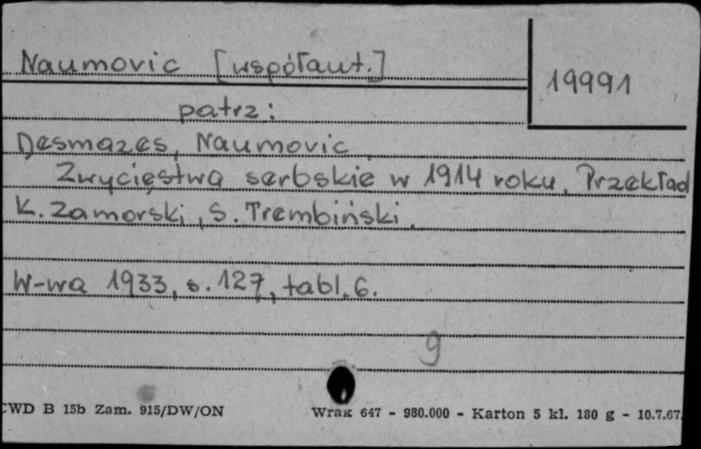 Naumovic [współaut.]
19991
patrz:
Desmazes, Naumovic
Zwycięstwa serbskie w 1914 roku. Przekład
K. Zamorski, S. Trembiński.
W-wa 1933, s. 127, tabl. 6.
9
CWD B 15b Zam. 915/DW/ON Wrak 647 - 980.000 - Karton 5 kl. 180 g - 10.7.67